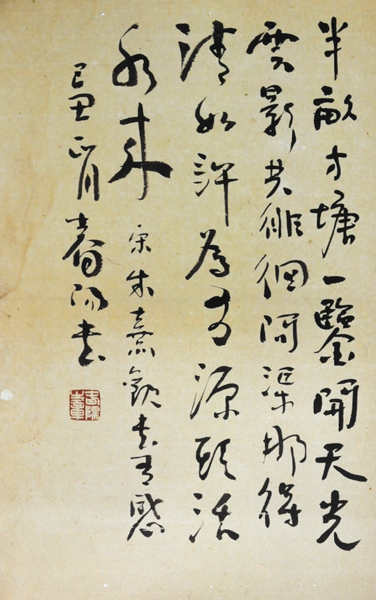 半畝方塘一鑒開天光
雲影共徘徊問渠那得
清如許為有源頭活
水來 宋朱熹觀書有感
己丑 書